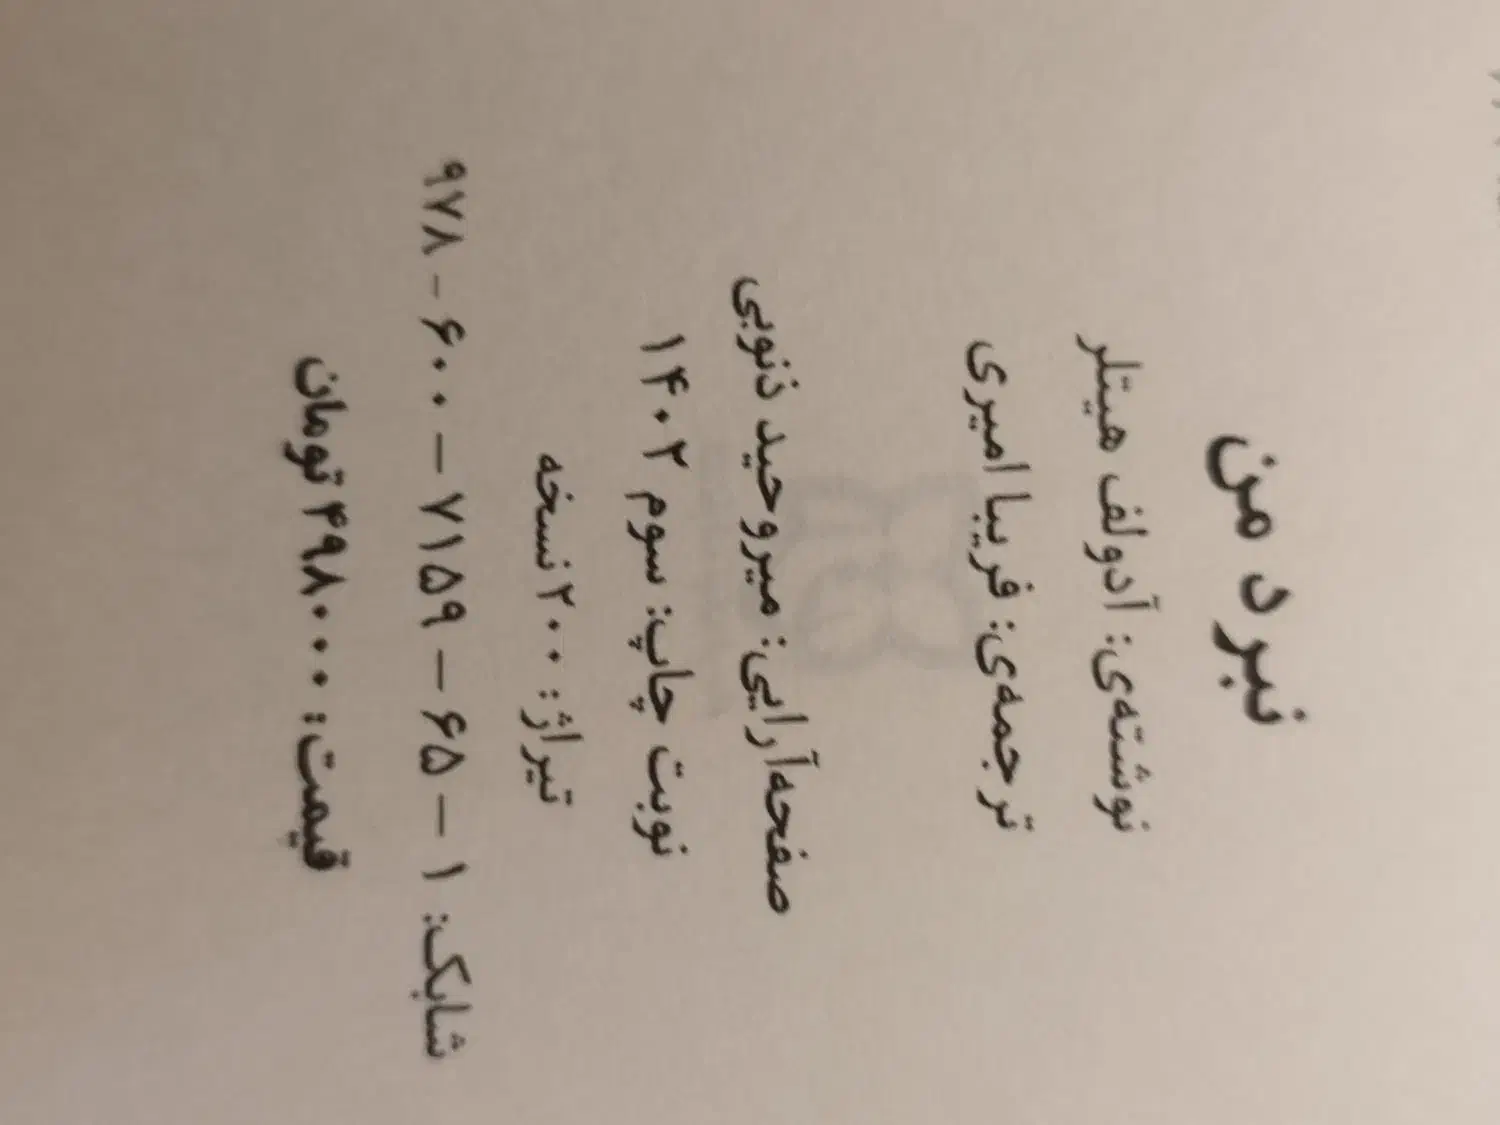 نبرد من
نوشته‌ی: آدولف هیتلر
ترجمه‌ی: فریبا امیری
صفحه‌آرایی: میروحید ذنوبی
نوبت چاپ: سوم ۱۴۰۲
تیراژ: ۲۰۰ نسخه
شابک: ۱ – ۶۵ – ۷۱۵۹ – ۶۰۰ – ۹۷۸
قیمت: ۴۹۸۰۰۰ تومان